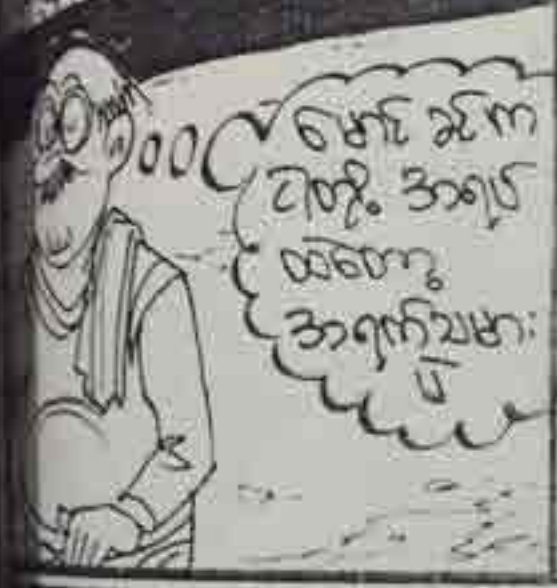 မောင် ခင်က
ငါတို့ အရပ်
ထဲတော့
အရက်သမား
ပဲ